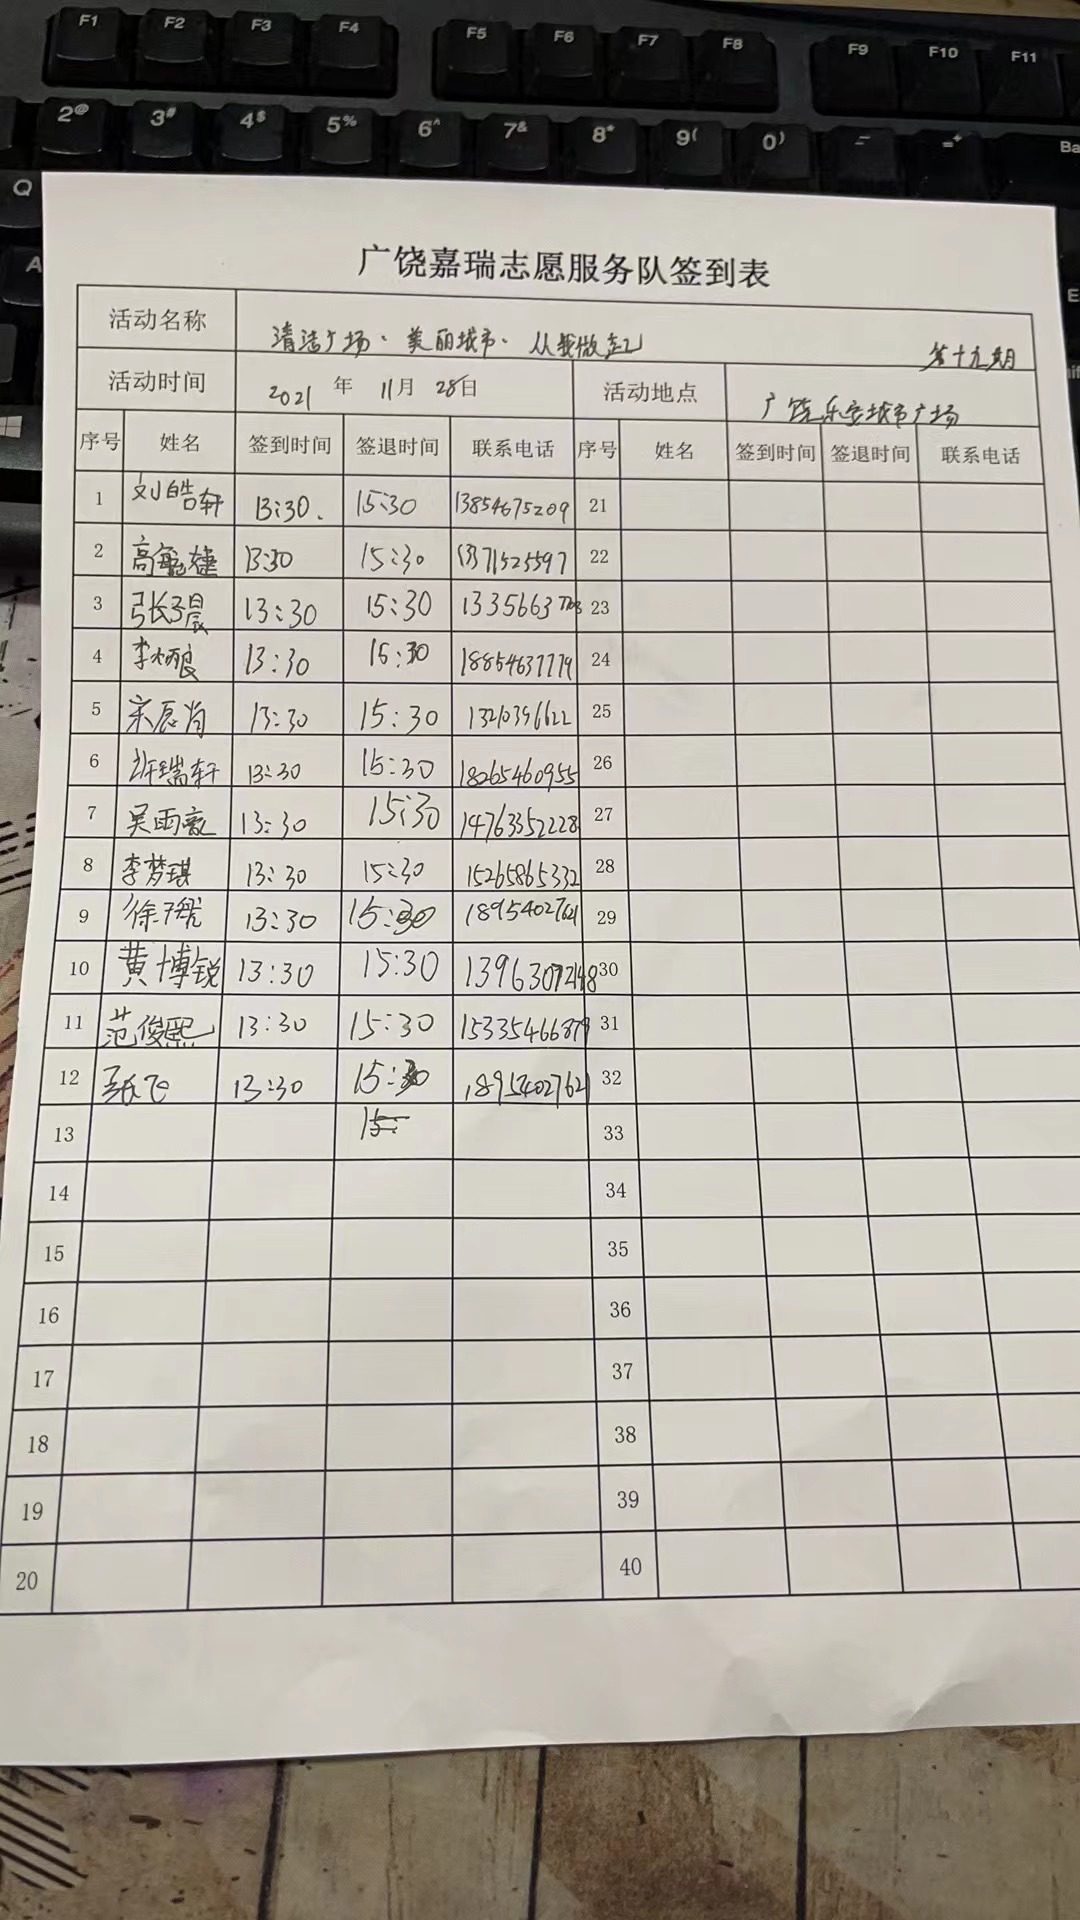 F1 F2 F3 F4 F5 F6 F7 F8 F9 F10 F11
2@ 3# 4$ 5% 6^ 7& 8* 9( 0) - =+ Ba
Q
A
广饶嘉瑞志愿服务队签到表
活动名称 清洁广场·美丽城市·从我做起 第十九期
活动时间 2021 年 11月 28日 活动地点 广饶乐安城市广场
序号 姓名 签到时间 签退时间 联系电话 序号 姓名 签到时间 签退时间 联系电话
1 刘皓轩 13:30. 15:30 13854675209 21
2 高毓婕 13:30 15:30 13371525597 22
3 张子晨 13:30 15:30 1335663 23
4 李炳良 13:30 15:30 18854637779 24
5 宋辰 13:30 15:30 25
6 瑞轩 13:30 15:30 18265460955 26
7 吴雨 13:30 15:30 14763352228 27
8 李梦琪 13:30 15:30 15265865332 28
9 徐子 13:30 15:30 18954027621 29
10 黄博锐 13:30 15:30 13963072148 30
11 范俊熙 13:30 15:30 15335466879 31
12 飞 13:30 15:30 18954027621 32
13 15: 33
14 34
15 35
16 36
17 37
18 38
19 39
20 40